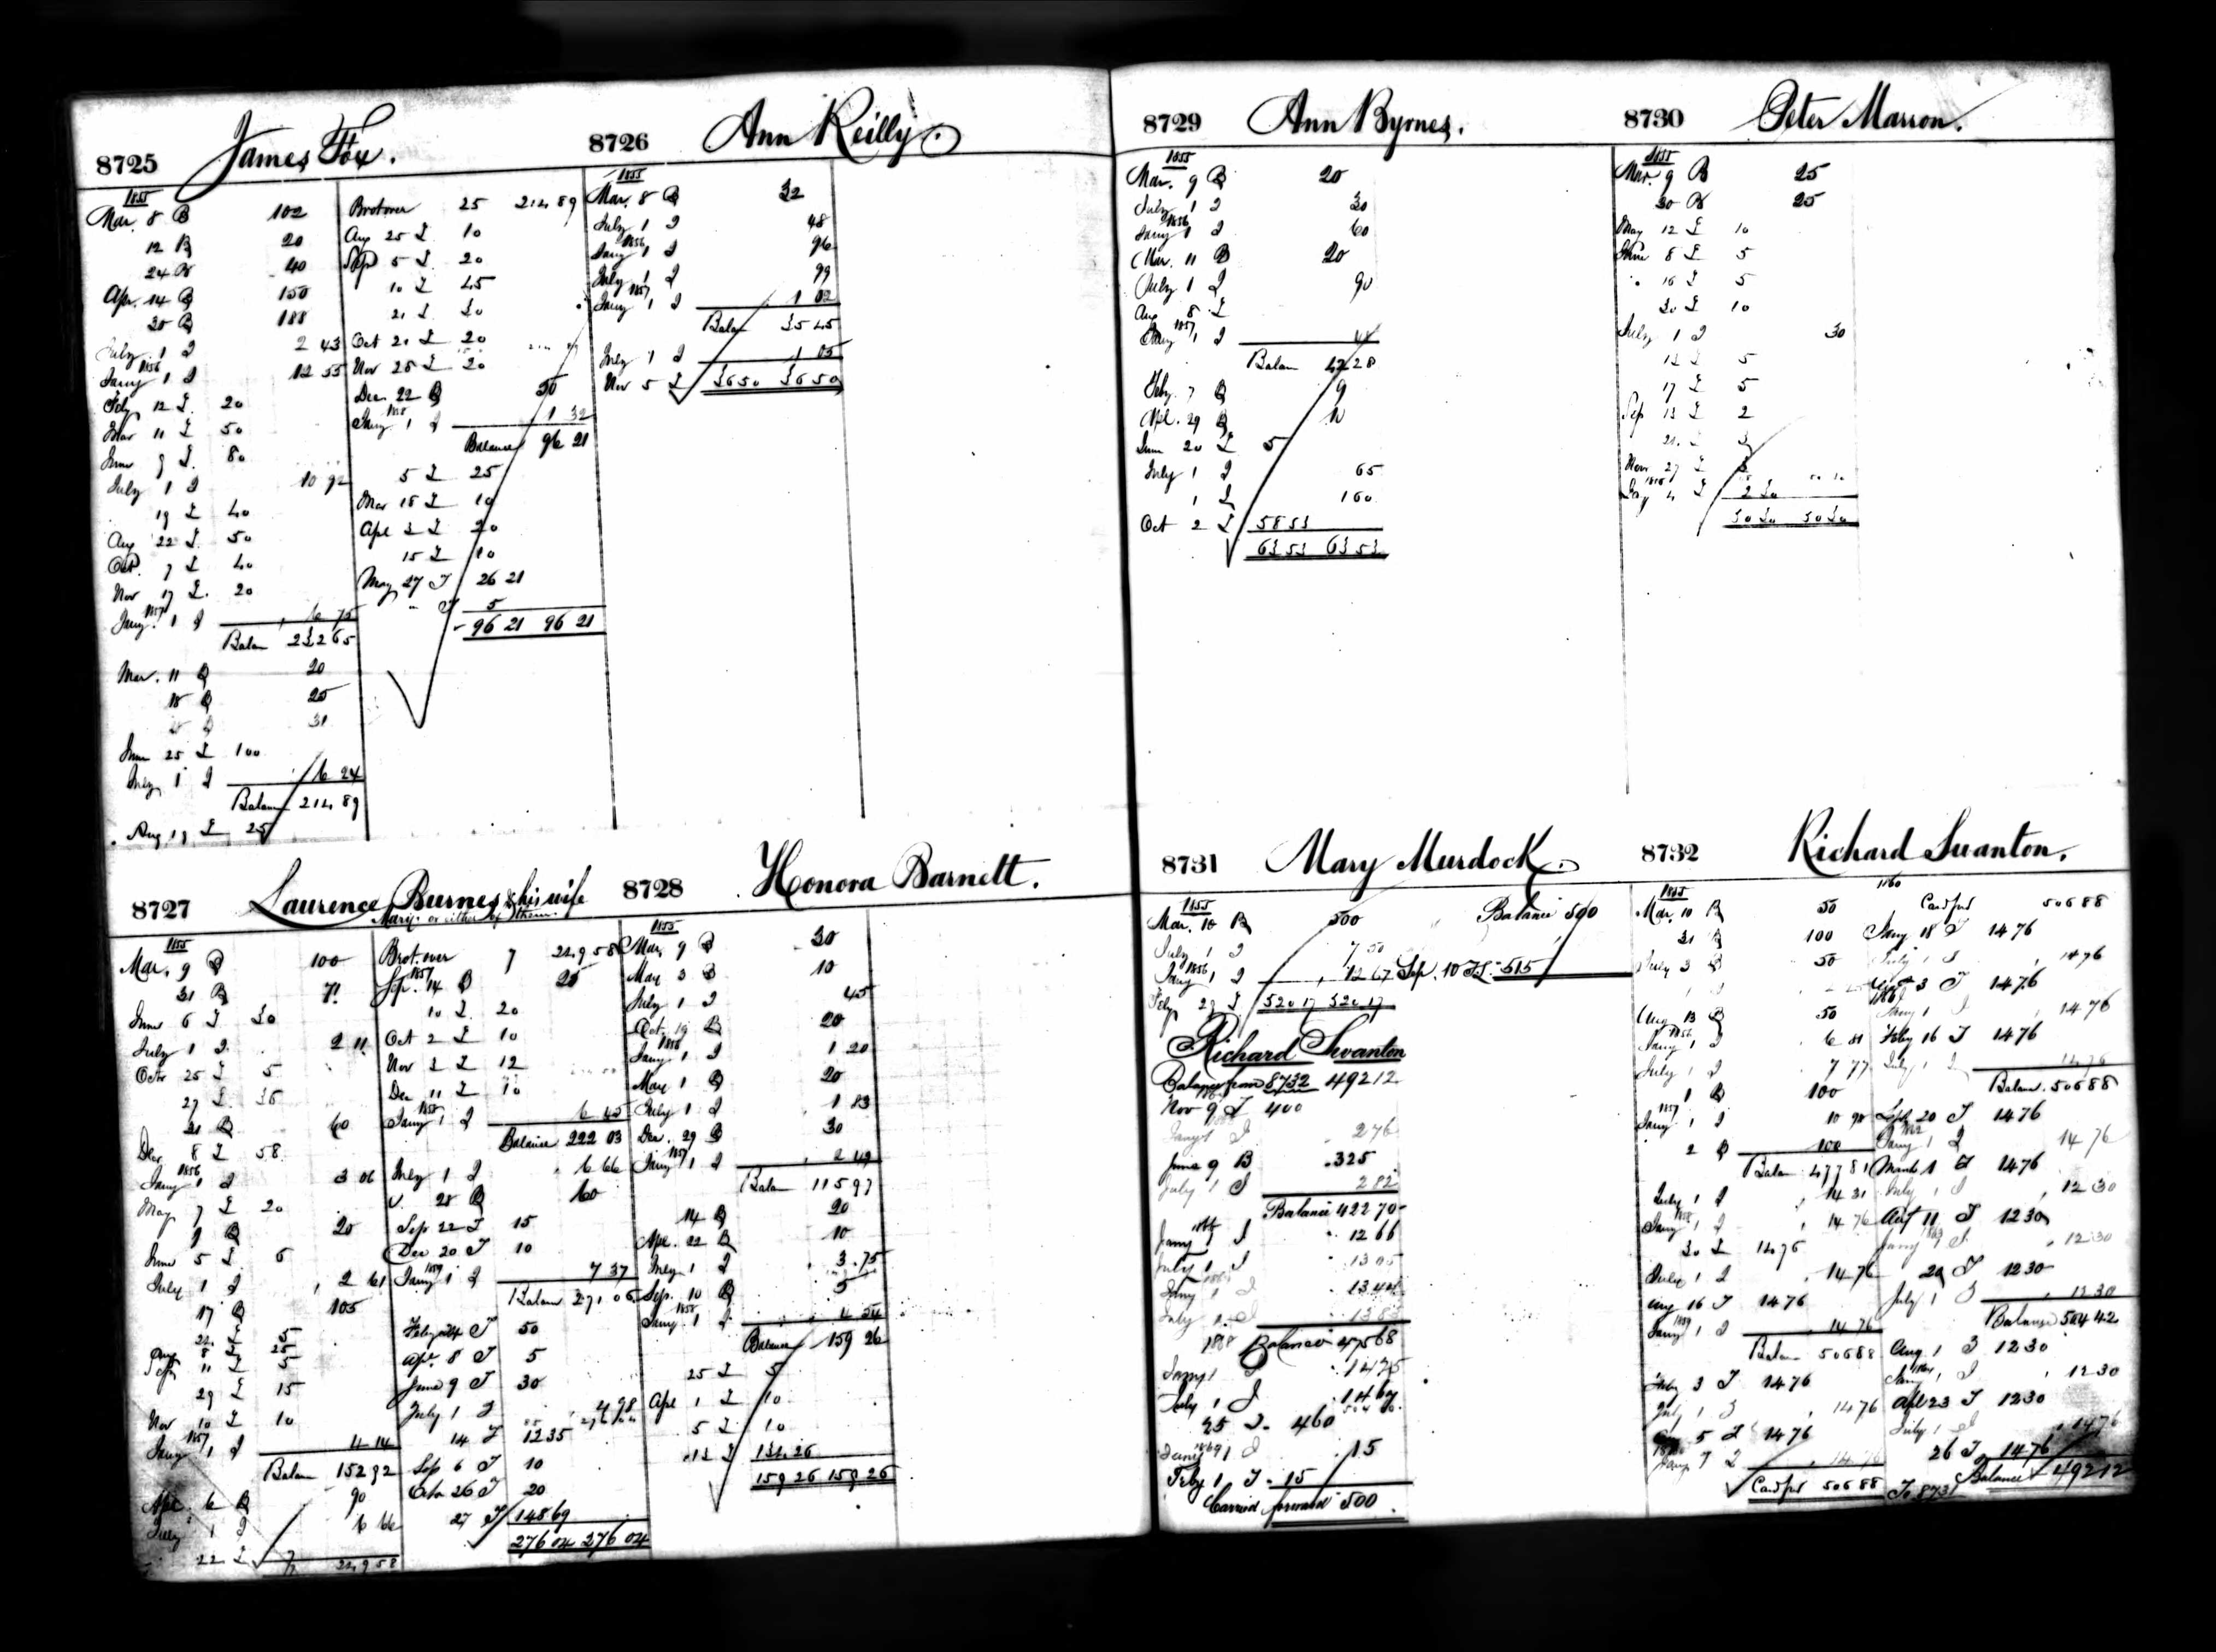 8725 James Fox.
1855
Mar. 8 B 102
12 B 20
24 B 40
Apr. 14 B 150
30 B 188
July 1 I 2 43
1856
Jany 1 I 12 55
Feby 12 L 20
Mar 11 L 50
June 9 L 80
July 1 I 10 92
19 L 40
Aug 22 L 50
Oct. 7 L 40
Nov 17 L 20
1857
Jany 1 I 6 75
Balan 232 65
Mar. 11 B 20
18 B 25
31
June 25 L 100
July 1 I 6 24
Balan 214 89
Aug 19 L 25
Brot over 25 214 89
Aug 25 L 10
Sep 5 L 20
10 L 45
21 L 30
Oct 21 L 20
Nov 28 L 20
Dec 22 B 50
1858
Jany 1 I 1 32
Balance 96 21
5 L 25
Mar 18 L 10
Apl 3 L 20
15 L 10
May 27 T 26 21
" T 5
96 21 96 21
8726 Ann Reilly.
1855
Mar. 8 B 32
July 1 I 48
1856
Jany 1 I 96
July 1 I 99
1857
Jany 1 I 1 02
Balan 35 45
July 1 I 1 05
Nov 5 L 36 50 36 50
8727 Laurence Burnes & his wife
Mary or either of them.
1855
Mar. 9 B 100
31 B 71
June 6 L 30
July 1 I 2 11
Octr 25 L 5
27 L 36
31 B 60
Dec 8 L 58
1856
Jany 1 I 3 06
May 7 L 20
9 B 20
June 5 L 6
July 1 I 2 61
17 B 105
24 L 5
Aug 8 L 25
Sept 11 L 5
29 L 15
Nov 10 L 10
1857
Jany 1 I 4 14
Balan 152 92
Apl. 6 B 90
July 1 I 6 66
22 L 7 249 58
Brot over 7 249 58
1857
Sep. 14 B 25
10 L 20
Oct 2 L 10
Nov 3 L 12
Dec 11 L 10
1858
Jany 1 I 6 45
Balance 222 03
July 1 I 6 66
28 B 60
Sep 22 T 15
Dec 20 T 10
1859
Jany 1 I 7 37
Balan 271 06
Feby 24 T 50
Apl. 8 T 5
June 9 T 30
July 1 I 4 98
14 T 12 35
Sep 6 T 10
Octr 26 T 20
27 T 148 69
276 04 276 04
8728 Honora Barnett.
1855
Mar. 9 B 30
May 3 B 10
July 1 I 45
Oct. 19 B 20
1856
Jany 1 I 1 20
May 1 B 20
July 1 I 1 83
Dec. 29 B 30
1857
Jany 1 I 2 49
Balan 115 97
14 B 20
Apl. 22 B 10
July 1 I 3.75
Sep. 10 B 5
1858
Jany 1 I 4 54
Balance 159 26
25 L 5
Apl 1 L 10
5 L 10
13 L 134.26
159 26 159 26
8729 Ann Byrnes.
1855
Mar. 9 B 20
July 1 I 30
1856
Jany 1 I 60
Mar. 11 B 20
July 1 I 90
Aug 8 L
1857
Jany 1 I 48
Balan 42 28
Feby. 7 B 9
Apl. 29 B 10
June 20 L 5
July 1 I 65
1 1 60
Oct 2 L 58 53
63 53 63 53
8730 Peter Marron.
1855
Mar. 9 B 25
30 B 25
May 12 L 10
June 8 L 5
16 L 5
30 L 10
July 1 I 30
12 L 5
17 L 5
Sep 13 L 2
Nov. 27 L
2 30
50 30 50 30
8731 Mary Murdock.
1855
Mar. 10 B 500
July 1 I 7 50
1856
Jany 1 I 12 67
Feby 27 L 520 17 520 17
Balance 500
Sep. 10 515
Richard Swanton
Balance from 8732 492 12
Nov 9 T 400
Jany 1 I 2 76
June 9 B 325
July 1 I 2 82
Balance 422 70
1866
Jany 1 I 12 66
July 1 I 13 05
Jany 1 I 13 44
July 1 I 13 83
1868 Balance 475 68
Jany 1 I 14 25
July 1 I 14 67
25 460
1869
Jany 1 I 15
Feby 1 T 15
Carried forward 500
8732 Richard Swanton.
1855
Mar. 10 B 50
31 B 100
July 3 B 50
Aug 13 B 50
1856
Jany 1 I 6 81
July 1 I 7 77
1 B 100
1857
Jany 1 I 10 90
2 B 100
Balan 477 81
July 1 I 14 31
1858
Jany 1 I 14 76
30 L 14.76
July 1 I 14 76
Aug 16 T 14 76
1859
Jany 1 I 14 76
Balan 506 88
Feby 3 T 14 76
July 1 I 14 76
Aug 5 T 14 76
Jany 14 76
Card fwd 506 88
1860
Card fwd 506 88
Jany 18 T 14 76
July 1 I 14 76
3 T 14 76
1861
Jany 1 I 14 76
Feby 16 T 14 76
July 1 I 14.76
Balan. 506 88
Sept. 20 T 14 76
1862
Jany 1 I 14 76
March 1 T 14 76
July 1 I 12 30
Aug 11 T 12 30
1863
Jany 1 I 12 30
20 T 12 30
July 1 I 12 30
Balance 504 42
Aug. 1 T 12 30
1864
Jany 1 I 12 30
Apl 23 T 12 30
July 1 I 14 76
26 T 14 76
Balance 492 12
To 8731